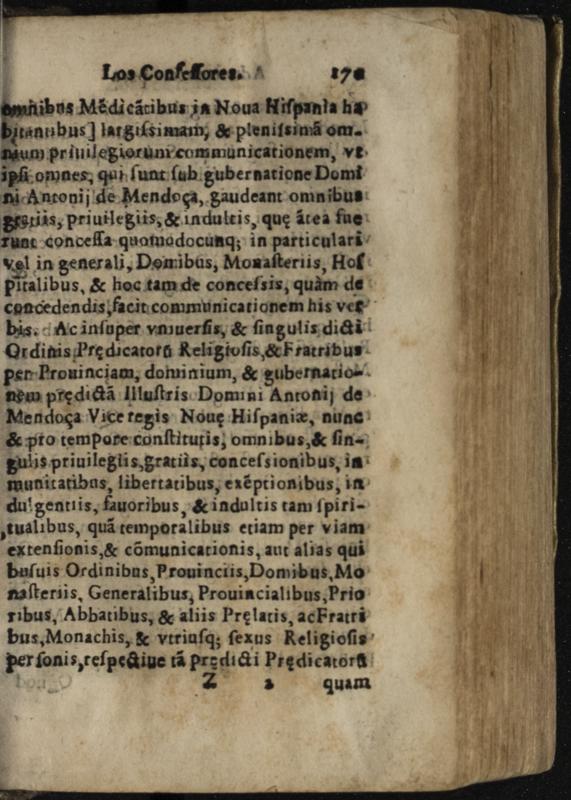 Los Confeſſores. 170
omnibus Mẽdicãtibus in Noua Hiſpania ha
bitantibus] largiſsimam, & pleniſsimã om-
nium priuilegiorum communicationem, vt
ipſi omnes, qui ſunt ſub gubernatione Domi
ni Antonij de Mendoça, gaudeant omnibus
gratiis, priuilegiis, & indultis, quę ãtea fue
runt conceſſa quomodocunq; in particulari
vel in generali, Domibus, Monaſteriis, Hoſ
pitalibus, & hoc tam de conceſsis, quàm de
concedendis, facit communicationem his ver
bis. Ac inſuper vniuerſis, & ſingulis dicti
Ordinis Prędicatorũ Religioſis,& Fratribus
per Prouinciam, dominium, & gubernatio-
nem prędictã Illuſtris Domini Antonij de
Mendoça Vice regis Nouę Hiſpaniæ, nunc
& pro tempore conſtitutis, omnibus,& ſin-
gulis priuilegiis,gratiis, conceſsionibus, in
munitatibus, libertatibus, exẽptionibus, in
dulgentiis, fauoribus, & indultis tam ſpiri-
tualibus, quã temporalibus etiam per viam
extenſionis,& cõmunicationis, aut alias qui
buſuis Ordinibus,Prouinciis,Domibus,Mo
naſteriis, Generalibus, Prouincialibus,Prio
ribus, Abbatibus, & aliis Pręlatis, ac Fratri
bus,Monachis, & vtriuſq; ſexus Religioſis
perſonis,reſpectiue tã prędicti Prędicatorũ
Z 2 quam